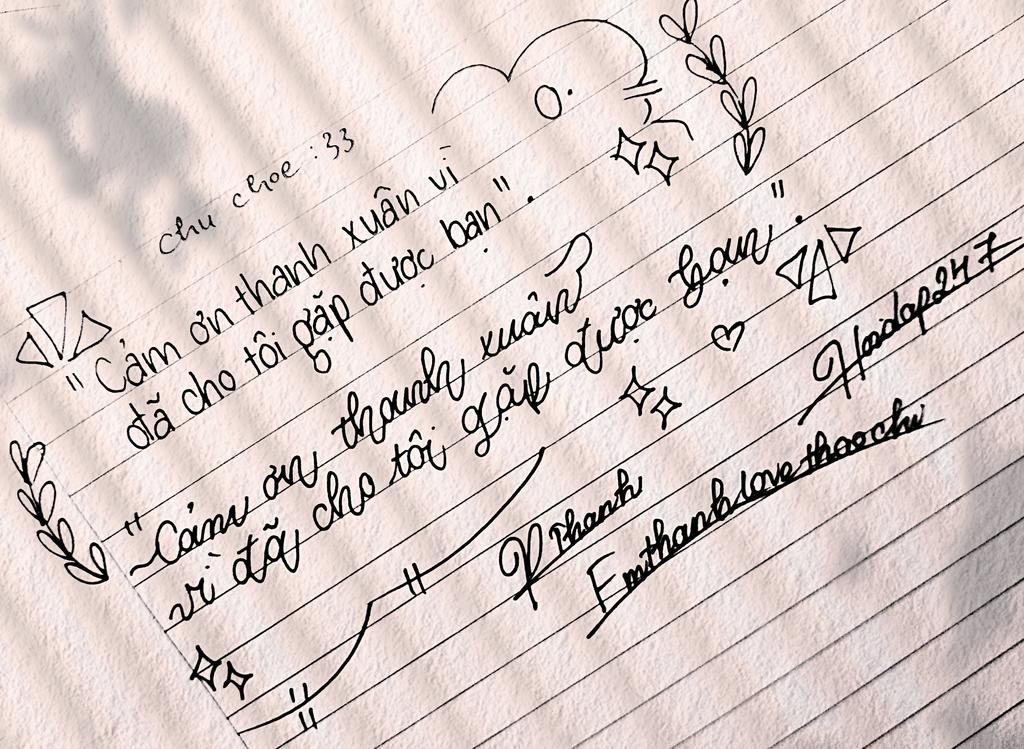 chu choe :33
"Cảm ơn thanh xuân vì
đã cho tôi gặp được bạn".
"Cảm ơn thanh xuân
vì đã cho tôi gặp được bạn".
Hoidap247
PThanh
Emthanhlovethaochi